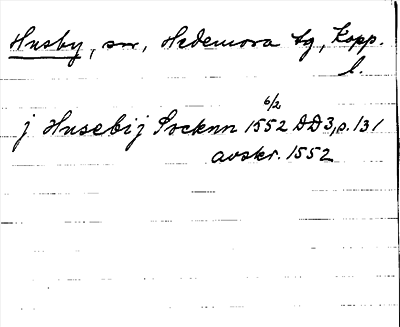 Husby, sn, Hedemora tg, Kopp.
l.
6/2
j Husebij Socknn 1552 DD3, p. 131
avskr. 1552